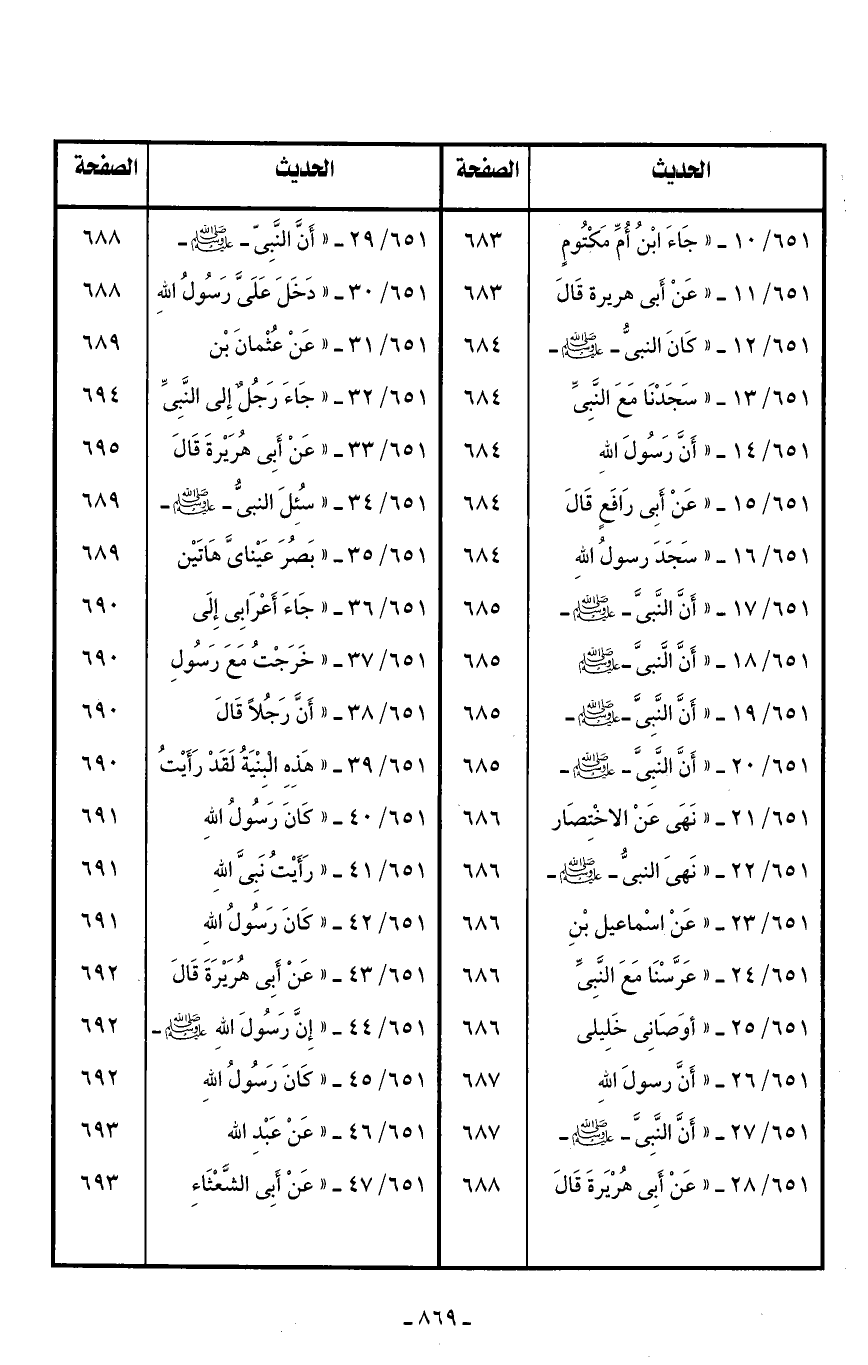 الحديث الصفحة الحديث الصفحة
٦٥١/ ١٠ ـ « جَاءَ ابْنُ أُمِّ مَكْتُومٍ ٦٨٣
٦٥١/ ١١ ـ « عَنْ أَبِى هريرة قَالَ ٦٨٣
٦٥١/ ١٢ ـ « كَانَ النبىُّ ـ ﷺ ـ ٦٨٤
٦٥١/ ١٣ ـ « سَجَدْنَا مَعَ النَّبِىِّ ٦٨٤
٦٥١/ ١٤ ـ « أَنَّ رَسُولَ اللهِ ٦٨٤
٦٥١/ ١٥ ـ « عَنْ أَبِى رَافَعٍ قَالَ ٦٨٤
٦٥١/ ١٦ ـ « سَجَدَ رسولُ اللهِ ٦٨٤
٦٥١/ ١٧ ـ « أَنَّ النَّبِىَّ ـ ﷺ ـ ٦٨٥
٦٥١/ ١٨ ـ « أَنَّ النَّبِىَّ ـ ﷺ ٦٨٥
٦٥١/ ١٩ ـ « أَنَّ النَّبِىَّ ـ ﷺ ـ ٦٨٥
٦٥١/ ٢٠ ـ « أَنَّ النَّبِىَّ ـ ﷺ ـ ٦٨٥
٦٥١/ ٢١ ـ « نَهَى عَنْ الاخْتِصَار ٦٨٦
٦٥١/ ٢٢ ـ « نَهىَ النبىُّ ـ ﷺ ـ ٦٨٦
٦٥١/ ٢٣ ـ « عَنْ اسْماعيل بْنِ ٦٨٦
٦٥١/ ٢٤ ـ « عَرَّسْنَا مَعَ النَّبِىِّ ٦٨٦
٦٥١/ ٢٥ ـ « أوَصَانِى خَلِيلى ٦٨٦
٦٥١/ ٢٦ ـ « أَنَّ رسولَ اللهِ ٦٨٧
٦٥١/ ٢٧ ـ « أَنَّ النَّبِىَّ ـ ﷺ ـ ٦٨٧
٦٥١/ ٢٨ ـ « عَنْ أَبِى هُرْيَرةَ قَالَ ٦٨٨
٦٥١/ ٢٩ ـ « أَنَّ النَّبِىّ ـ ﷺ ـ ٦٨٨
٦٥١/ ٣٠ ـ « دَخَلَ عَلَىَّ رَسُولُ اللهِ ٦٨٨
٦٥١/ ٣١ ـ « عَنْ عُثْمانَ بْن ٦٨٩
٦٥١/ ٣٢ ـ « جَاءَ رَجُلٌ إلى النَّبِىِّ ٦٩٤
٦٥١/ ٣٣ ـ « عَنْ أَبِى هُرَيْرةَ قَالَ ٦٩٥
٦٥١/ ٣٤ ـ « سُئِلَ النبىُّ ـ ﷺ ـ ٦٨٩
٦٥١/ ٣٥ ـ « بَصُرَ عَيْناىَّ هَاتَيْنِ ٦٨٩
٦٥١/ ٣٦ ـ « جَاءَ أَعْرَابِى إِلَى ٦٩٠
٦٥١/ ٣٧ ـ « خَرَجْتُ مَعَ رَسُولِ ٦٩٠
٦٥١/ ٣٨ ـ « أَنَّ رَجُلاً قَالَ ٦٩٠
٦٥١/ ٣٩ ـ « هَذِهِ الْبِنْيَةُ لَقَدْ رَأَيْتُ ٦٩٠
٦٥١/ ٤٠ ـ « كَانَ رَسُولُ اللهِ ٦٩١
٦٥١/ ٤١ ـ « رَأَيْتُ نَبِىَّ اللهِ ٦٩١
٦٥١/ ٤٢ ـ « كَانَ رَسُولُ اللهِ ٦٩١
٦٥١/ ٤٣ ـ « عَنْ أَبِى هُرَيْرَةَ قَالَ ٦٩٢
٦٥١/ ٤٤ ـ « إِنَّ رَسُولَ اللهِ ﷺ ـ ٦٩٢
٦٥١/ ٤٥ ـ « كَانَ رَسُولُ اللهِ ٦٩٢
٦٥١/ ٤٦ ـ « عَنْ عَبْدِ الله ٦٩٣
٦٥١/ ٤٧ ـ « عَنْ أَبِى الشَّعْثَاءِ ٦٩٣
ـ ٨٦٩ ـ